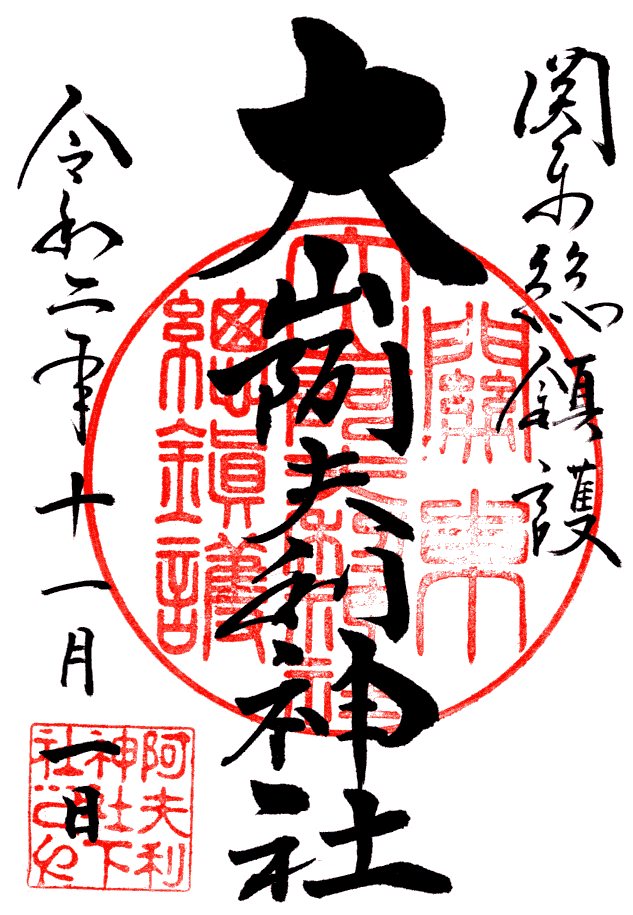 関東総鎮護
大山阿夫利神社
令和二年十一月一日
關東
總鎭護
阿夫利
神社下
社之印